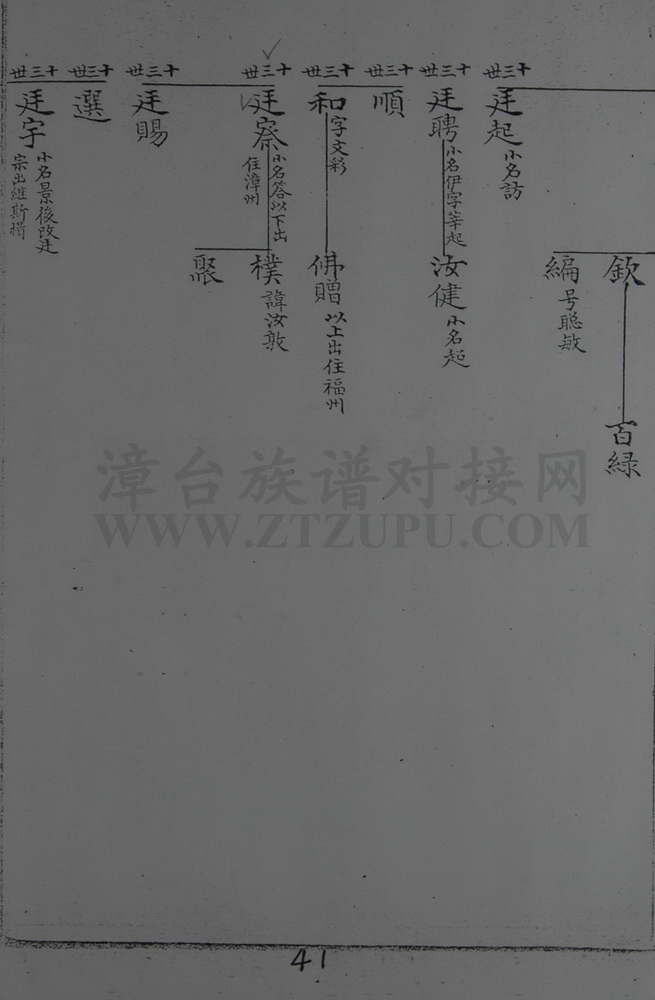 十三世
廷起
小名訪
欽
百緑
編
号聪敏
十三世
廷聘
小名伊字莘起
汝健
小名起
十三世
順
十三世
和
字文彩
佛贈
以上出住福州
十三世
廷察
小名答以下出
住漳州
樸
諱汝敦
聚
十三世
廷賜
十三世
選
十三世
廷宇
小名景後改廷
宗出維斯
漳台族谱对接网
WWW.ZTZUPU.COM
41